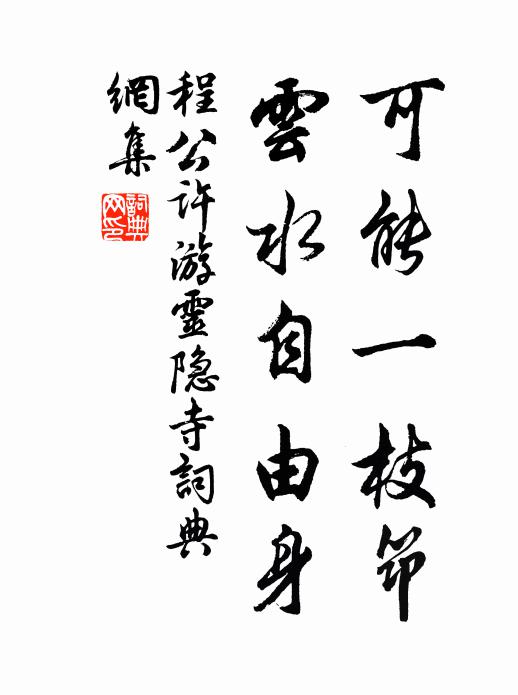 可能一枝筇
雲水自由身
程公许游靈隐寺詞典
網集
詞典
网印